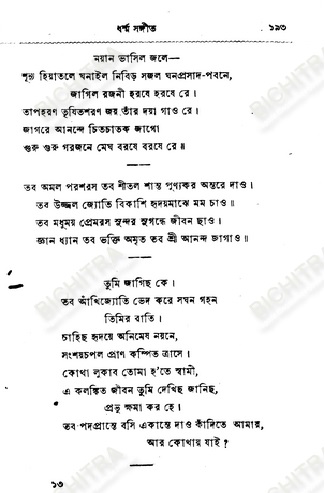 ধর্ম্ম সঙ্গীত ১৯৩
নয়ান ভাসিল জলে—
শূন্য হিয়াতলে ঘনাইল নিবিড় সজল ঘনপ্রসাদ-পবনে,
জাগিল রজনী হরষে হরষে রে।
তাপহরণ তৃষিতশরণ জয় তাঁর দয়া গাও রে।
জাগরে আনন্দে চিতচাতক জাগো
গুরু গুরু গরজনে মেঘ বরষে বরষে রে॥
তব অমল পরশরস তব শীতল শান্ত পুণ্যকর অন্তরে দাও।
তব উজ্জল জ্যোতি বিকাশি হৃদয়মাঝে মম চাও॥
তব মধুময় প্রেমরস সুন্দর সুগন্ধে জীবন ছাও।
জ্ঞান ধ্যান তব ভক্তি অমৃত তব শ্রী আনন্দ জাগাও॥
তুমি জাগিছ কে।
তব আঁখিজ্যোতি ভেদ করে সঘন গহন
তিমির রাতি।
চাহিছ হৃদয়ে অনিমেষ নয়নে,
সংশয়চপল প্রাণ কম্পিত ত্রাসে।
কোথা লুকাব তোমা হ'তে স্বামী,
এ কলঙ্কিত জীবন তুমি দেখিছ জানিছ,
প্রভু ক্ষমা কর হে।
তব পদপ্রান্তে বসি একান্তে দাও কাঁদিতে আমায়,
আর কোথায় যাই?
১৩
BICHITRA